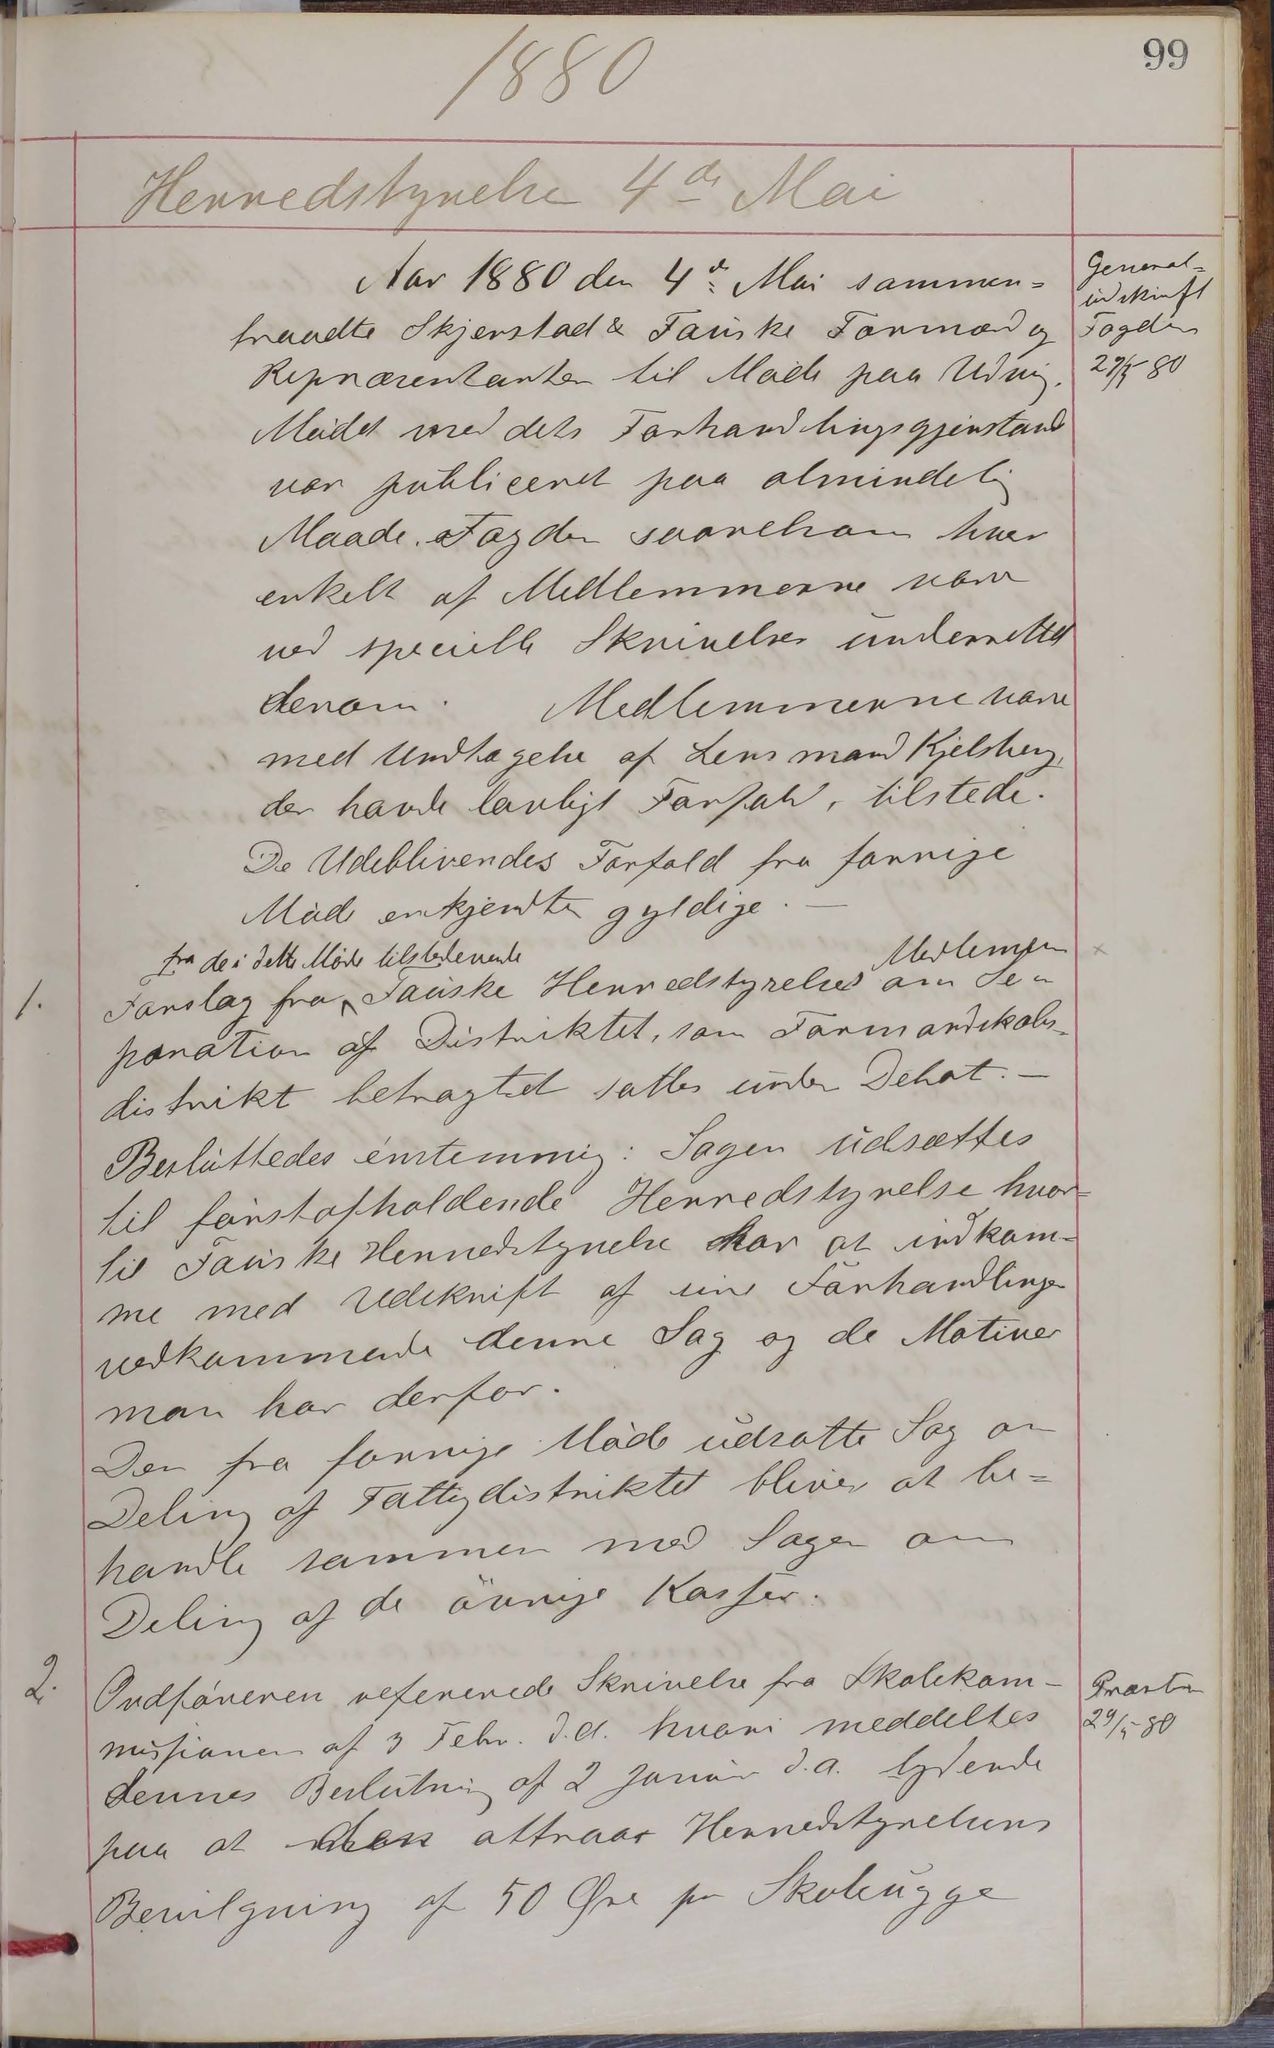 99
1880
Herredstyrelse 4de Mai
Aar 1880 den 4de Mai sammen=
traadte Skjerstad & Fauske Formænd og
Repræsentanter til Møde paa Udvig.
Mødet med dets Forhandlingsgjenstand
var publiceret paa almindelig
Maade. Fogden saavelsom hver
enkelt af Medlemmerne vare
ved specielle Skrivelser underrettet
derom. Medlemmerne vare
med Undtagelse af Lensmand Kjelsberg,
der havde lovligt Forfald, tilstede.
De Udeblivendes Forfald fra forrige
Møde erkjendtes gyldige. —
General=
udskrift
Fogden
29/5 80
fra de i dette Møde tilstedeværende Medlemmer
1. Forslag fra Fauske Herredstyrelses om Se=
paration af Distriktet, som Formandskabs=
distrikt betragtet sattes under Debat. —
Besluttedes énstemmig: Sagen udsættes
til førstafholdende Herredstyrelse hvor=
til Fauske Herredstyrelse har at indkom=
me med Udskrift af sine Forhandlinger
vedkommende denne Sag og de Motiver
man har derfor.
Den fra forrige Møde udsatte Sag om
Deling af Fattigdistriktet bliver at be=
handle sammen med Sagen om
Deling af de øvrige Kasser.
2. Ordføreren refererede Skrivelse fra Skolekom-
missionen af 3 Febr. d.A. hvori meddeltes
dennes Beslutning af 2 Januar d.A. lydende
paa at den attraar Herredstyrelsens
Bevilgning af 50 Øre pr Skoleugge
Præsten
29/5 80